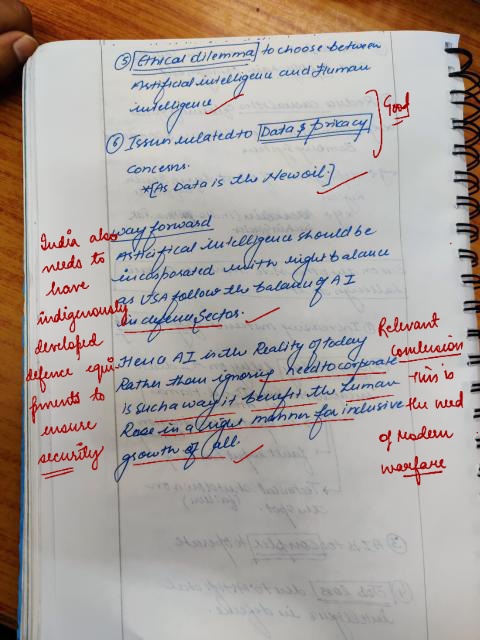 ⑤ Ethical dilemma to choose between
Artificial intelligence and Human
intelligence
⑥ Issue related to Data & privacy
concerns.
*[As Data is the New oil.]
Good
way forward
Artificial intelligence should be
incorporated with right balance
as USA follow the balance of AI
in defence Sector.
Hence AI is the Reality of today
Rather than ignoring need to corporate
is such a way it benefit the human
Race in a right manner for inclusive
growth of all.
India also
needs to
have
indigenously
developed
defence equi
pments to
ensure
security
Relevant
Conclusion
This is
the need
of modern
warfare